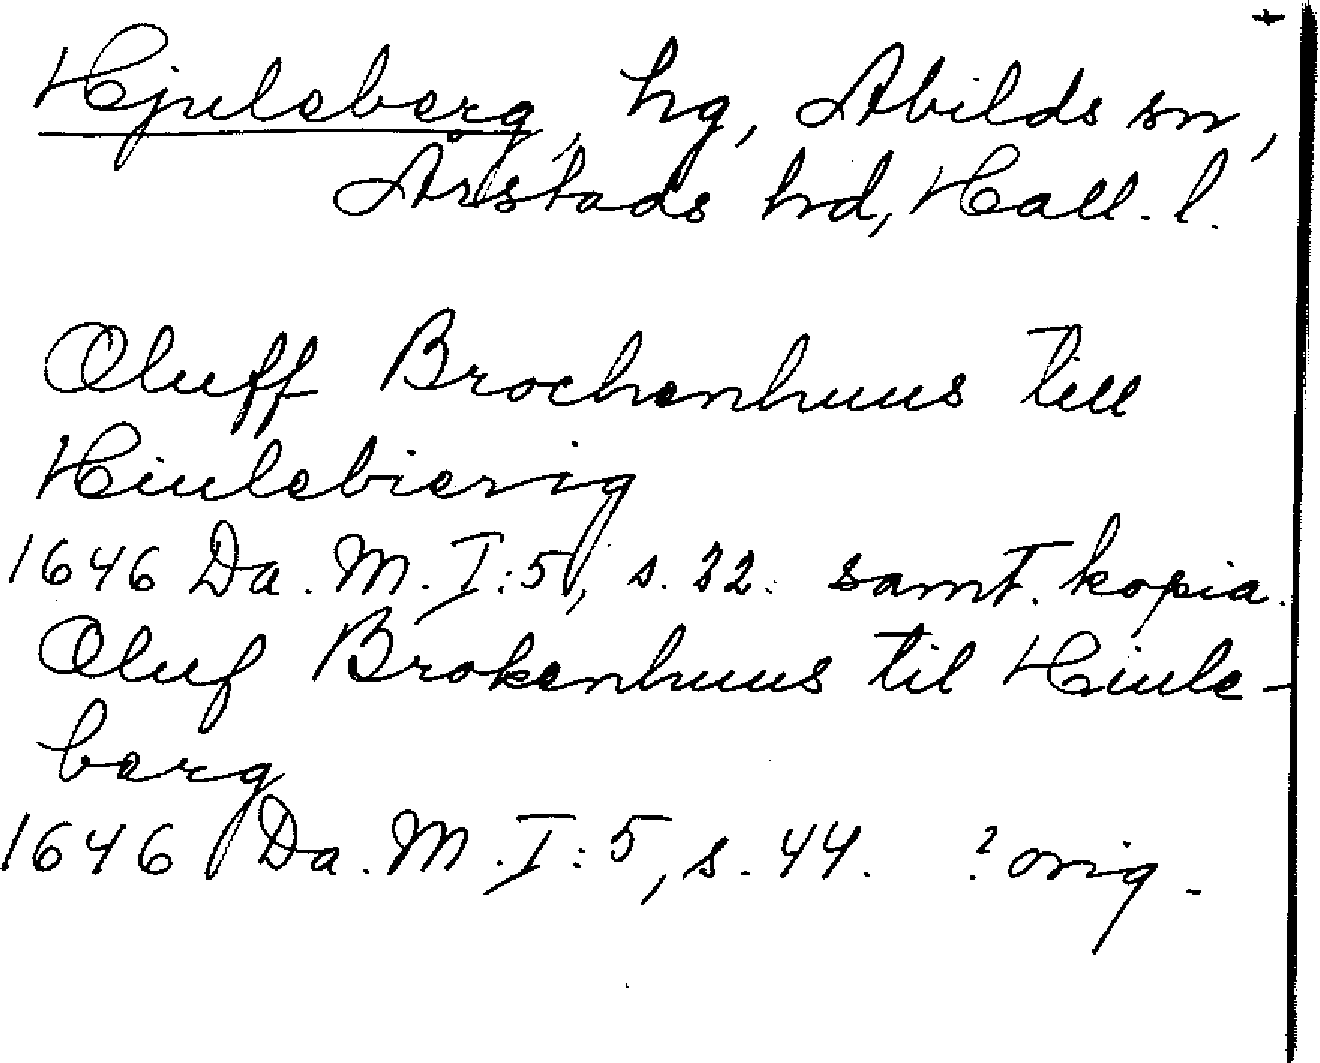 Hjuleberg, hg, Abilds sn,
Årstads hd, Hall. l.
Oluff Brochenhuus till
Hiulebierig
1646 Da. M. I:5, s. 32. samt. kopia.
Oluf Brokenhuus til Hiule-
berg
1646 Da. M. I:5, s. 44. ? orig.